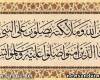 إن الله وملائكته يصلون على النبي
يا أيها الذين آمنوا صلوا عليه وسلموا تسليما